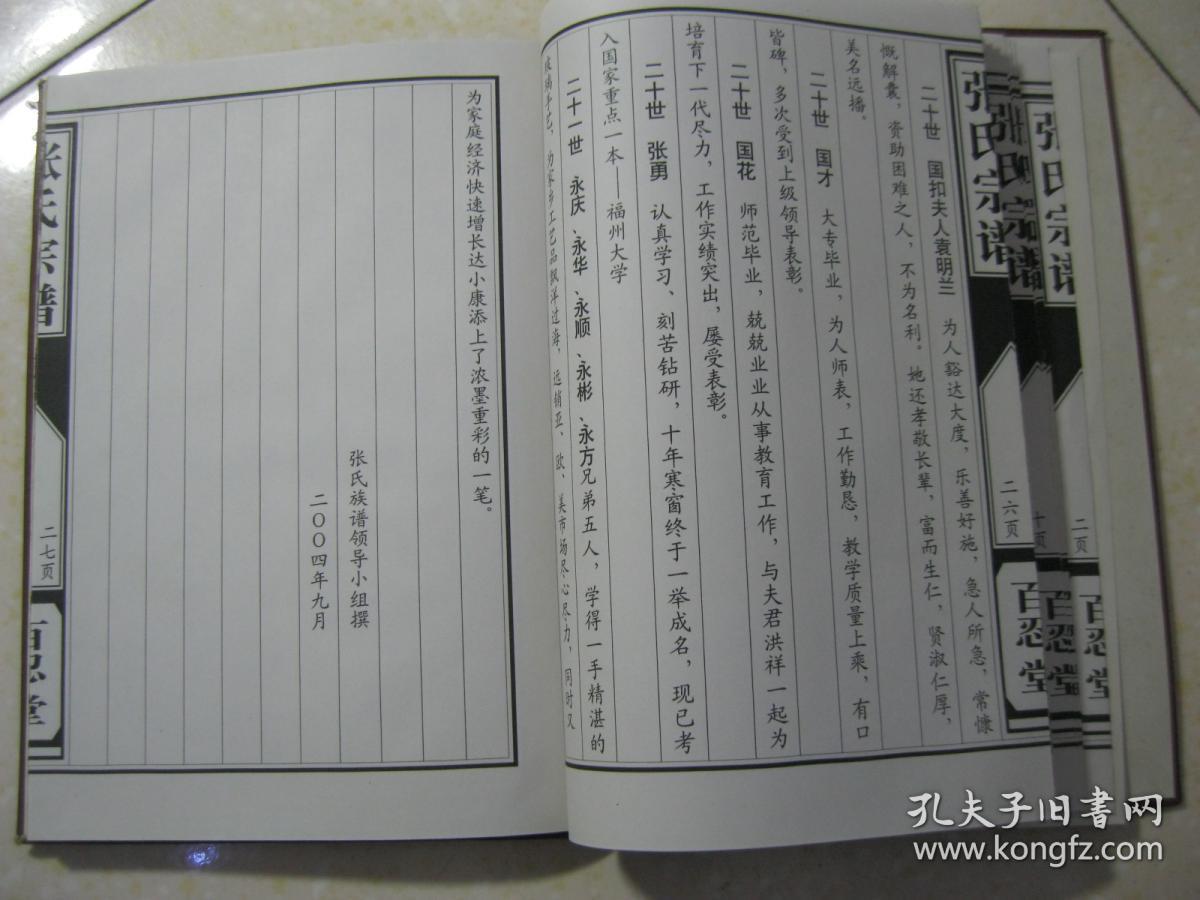 二十世 国扣夫人袁明兰 为人豁达大度，乐善好施，急人所急，常慷
慨解囊，资助困难之人，不为名利。她还孝敬长辈，富而生仁，贤淑仁厚，
美名远播。
二十世 国才 大专毕业，为人师表，工作勤恳，教学质量上乘，有口
皆碑，多次受到上级领导表彰。
二十世 国花 师范毕业，兢兢业业从事教育工作，与夫君洪祥一起为
培育下一代尽力，工作实绩突出，屡受表彰。
二十世 张勇 认真学习、刻苦钻研，十年寒窗终于一举成名，现已考
入国家重点一本——福州大学
二十一世 永庆、永华、永顺、永彬、永方兄弟五人，学得一手精湛的
手艺，为家乡工艺品飘洋过海，远销亚、欧、美市场尽心尽力，同时又
为家庭经济快速增长达小康添上了浓墨重彩的一笔。
张氏族谱领导小组撰
二〇〇四年九月
张氏宗谱
二六页
百忍堂
张氏宗谱
十页
百忍堂
张氏宗谱
二页
百忍堂
张氏宗谱
二七页
百忍堂
孔夫子旧书网
www.kongfz.com